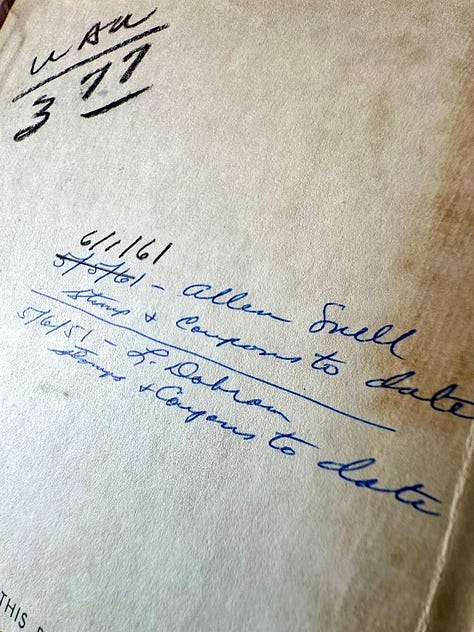 377
6/1/61
5/5/61 - Allen Snell
Stamps & Coupons to date
5/6/51 - L. Dobrow
Stamps & Coupons to date
THIS